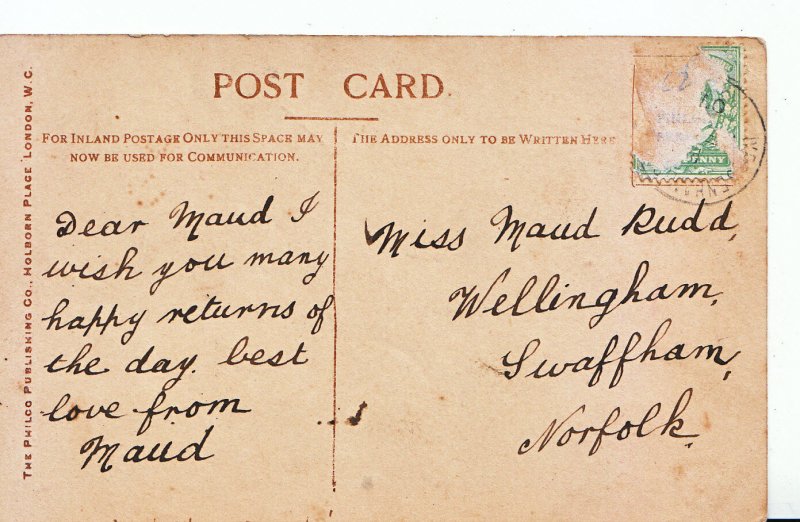 POST CARD.
FOR INLAND POSTAGE ONLY THIS SPACE MAY
NOW BE USED FOR COMMUNICATION.
THE ADDRESS ONLY TO BE WRITTEN HERE
THE PHILCO PUBLISHING CO., HOLBORN PLACE LONDON, W.C.
Dear Maud I
wish you many
happy returns of
the day. best
love from
Maud
Miss Maud Rudd,
Wellingham,
Swaffham,
Norfolk.
PENNY